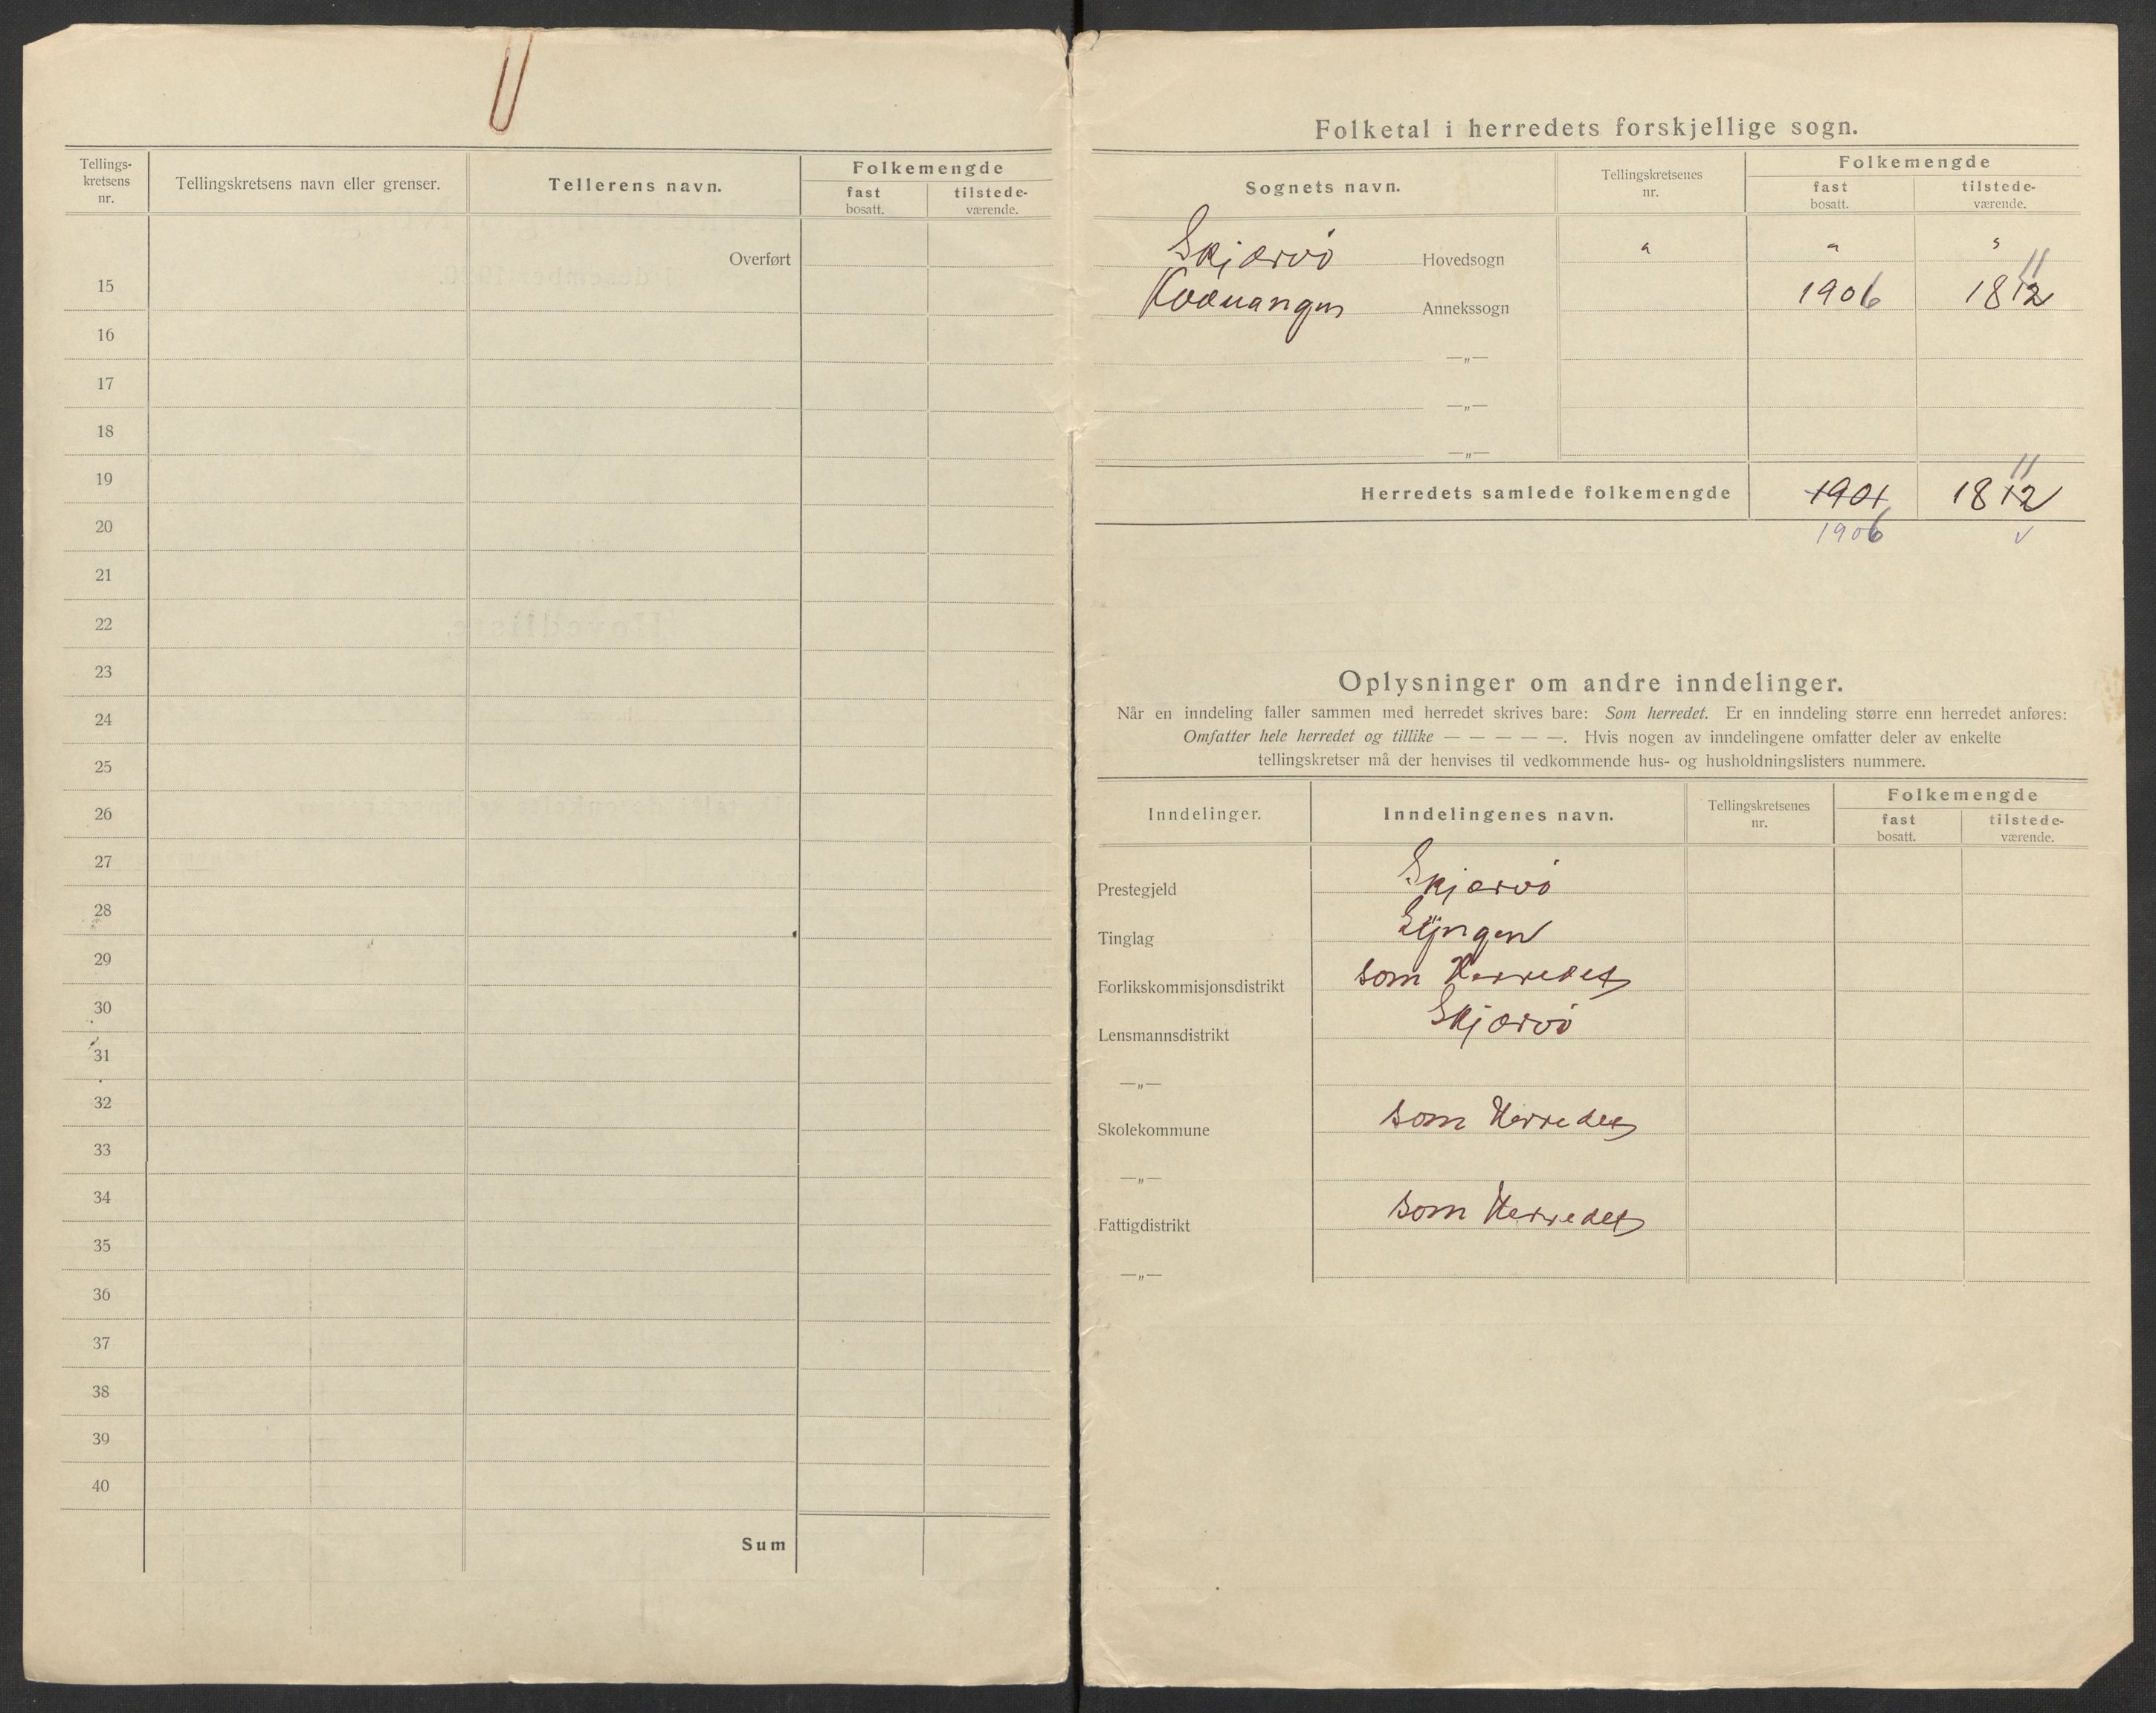 Tellings-
kretsens
nr.
Tellingskretsens navn eller grenser.
Tellerens navn.
Folkemengde
fast
bosatt.
tilstede-
værende.
Overført
15
16
17
18
19
20
21
22
23
24
25
26
27
28
29
30
31
32
33
34
35
36
37
38
39
40
Sum
Folketal i herredets forskjellige sogn.
Sognets navn.
Tellingskretsenes
nr.
Folkemengde
fast
bosatt.
tilstede-
værende.
Skjærvö Hovedsogn " " "
Kvænangen Annekssogn 1906 1812 11
—„—
—„—
—„—
Herredets samlede folkemengde 1901 1812 11
1906 ✓
Oplysninger om andre inndelinger.
Når en inndeling faller sammen med herredet skrives bare: Som herredet. Er en inndeling større enn herredet anføres:
Omfatter hele herredet og tillike — — — — —. Hvis nogen av inndelingene omfatter deler av enkelte
tellingskretser må der henvises til vedkommende hus- og husholdningslisters nummere.
Inndelinger.
Inndelingenes navn.
Tellingskretsenes
nr.
Folkemengde
fast
bosatt.
tilstede-
værende.
Prestegjeld Skjærvö
Tinglag Lyngen
Forlikskommisjonsdistrikt som Herredet
Lensmannsdistrikt Skjærvö
—„—
Skolekommune som Herredet
—„—
Fattigdistrikt som Herredet
—„—